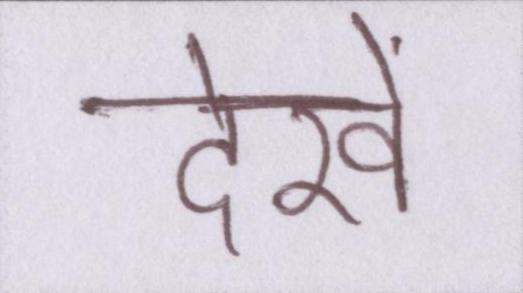 देखें